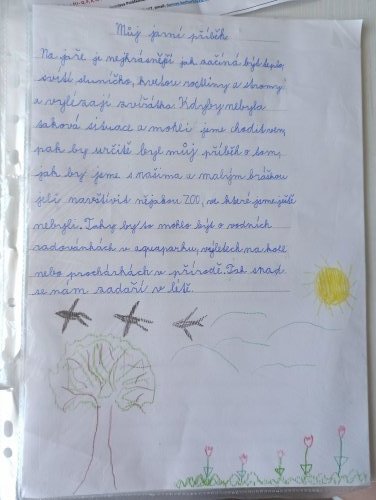 Můj jarní příběh
Na jaře je nejkrásnější jak začíná být teplo,
svítí sluníčko, kvetou rostliny a stromy
a vylézají zvířátka. Kdyby nebyla
taková situace a mohli jsme chodit ven,
pak by určitě byl můj příběh o tom,
jak by jsme s našima a malým bráškou
jeli navštívit nějakou ZOO, ve které jsme ještě
nebyli. Taky by to mohlo být o vodních
radovánkách v aquaparku, výletech na kole
nebo procházkách v přírodě. Tak snad
se nám zadaří v létě.